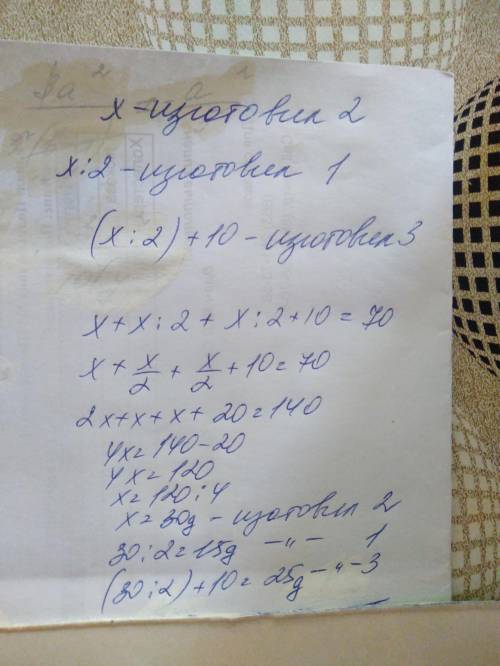 x - изготовил 2
x : 2 - изготовил 1
(x : 2) + 10 - изготовил 3
x + x : 2 + x : 2 + 10 = 70
x + x/2 + x/2 + 10 = 70
2x + x + x + 20 = 140
4x = 140 - 20
4x = 120
x = 120 : 4
x = 30д - изготовил 2
30 : 2 = 15д -"- 1
(30 : 2) + 10 = 25д -"- 3